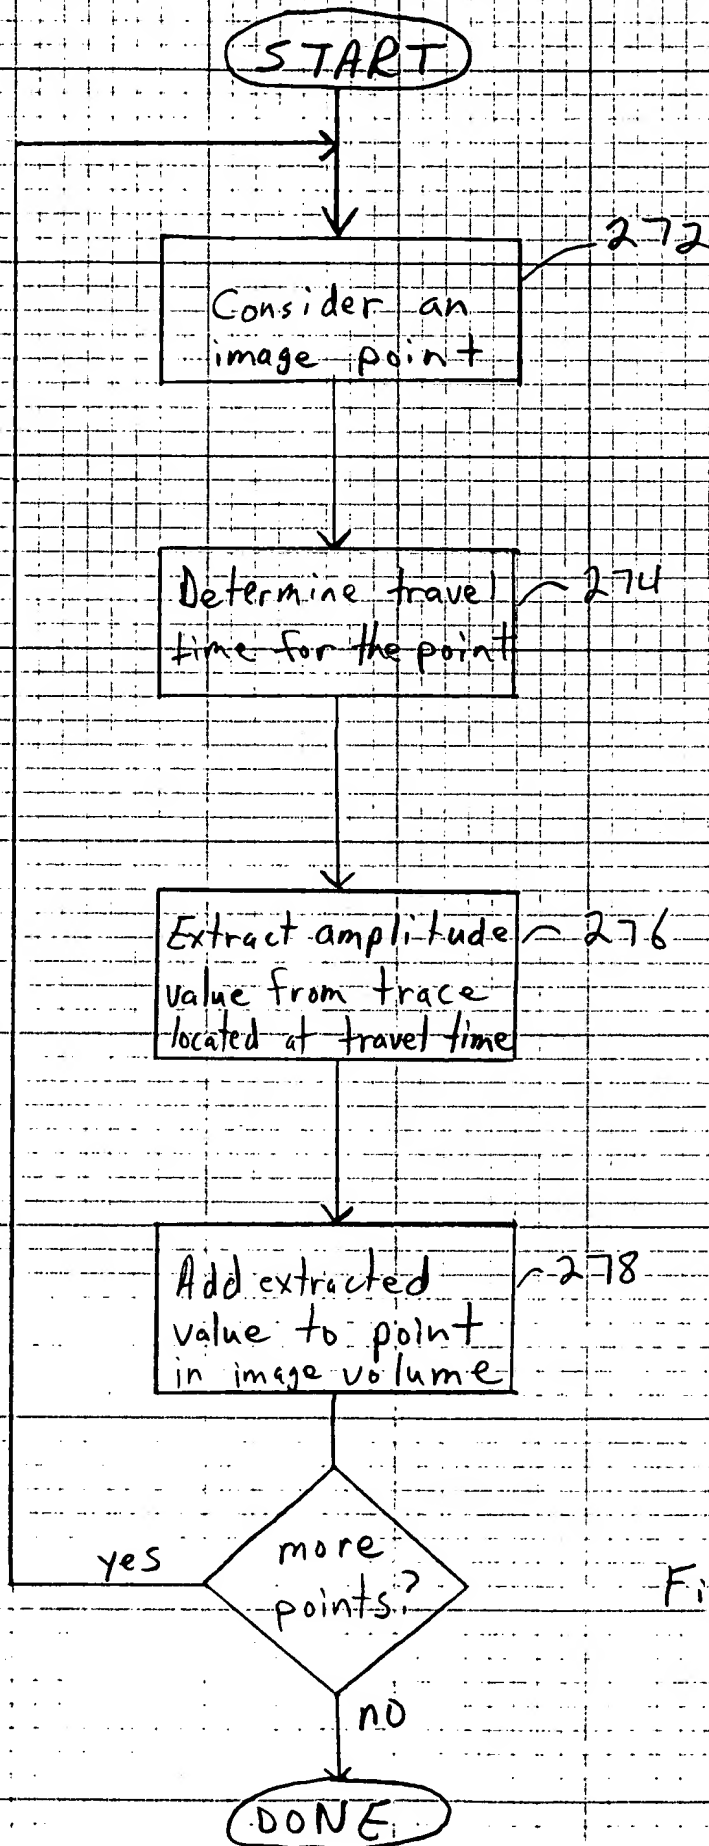 START
272
Consider an
image point
Determine travel
274
time for the point
Extract amplitude
276
value from trace
located at travel time
Add extracted
278
value to point
in image volume
more
points?
yes
Fi
no
DONE